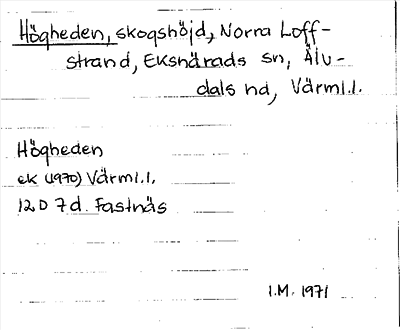 Högheden, skogshöjd, Norra Loff-
strand, Ekshärads sn, Älv-
dals hd, Värml.l.
Högheden
ek (1970) Värml.l.
12 D 7d. Fastnäs
I.M. 1971